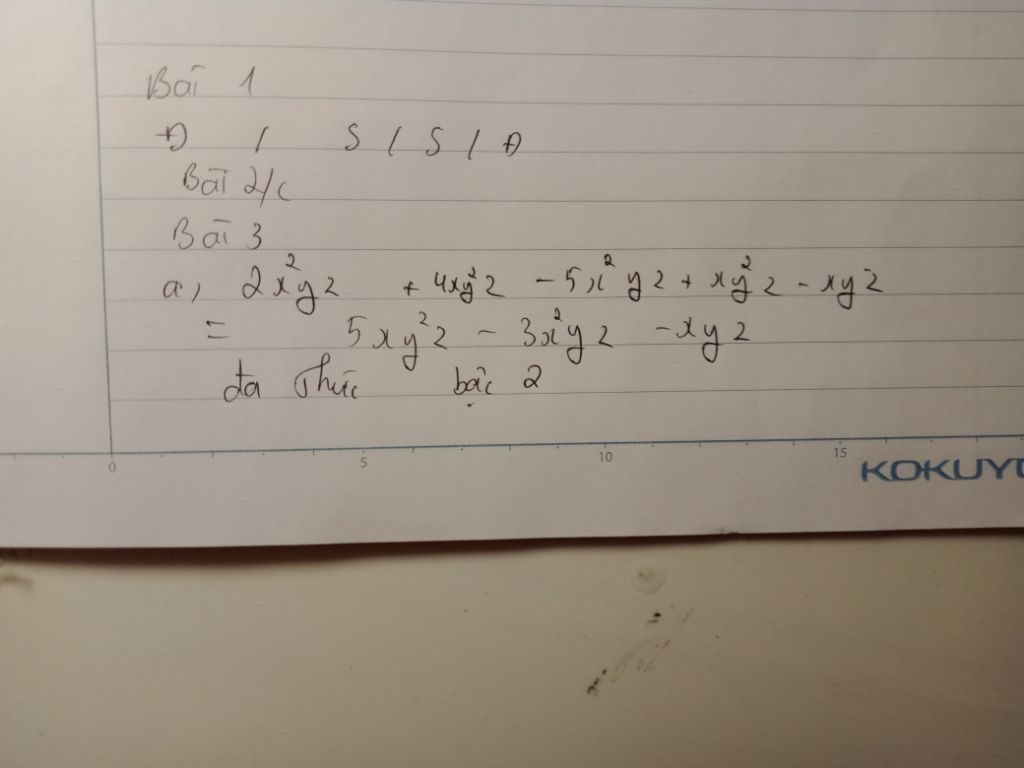 Bài 1
Đ / S / S / Đ
Bài 2/c
Bài 3
a, 2x²yz + 4xy²z - 5x²yz + xy²z - xyz
= 5xy²z - 3x²yz - xyz
đa thức bậc 2
0 5 10 15
KOKUYO